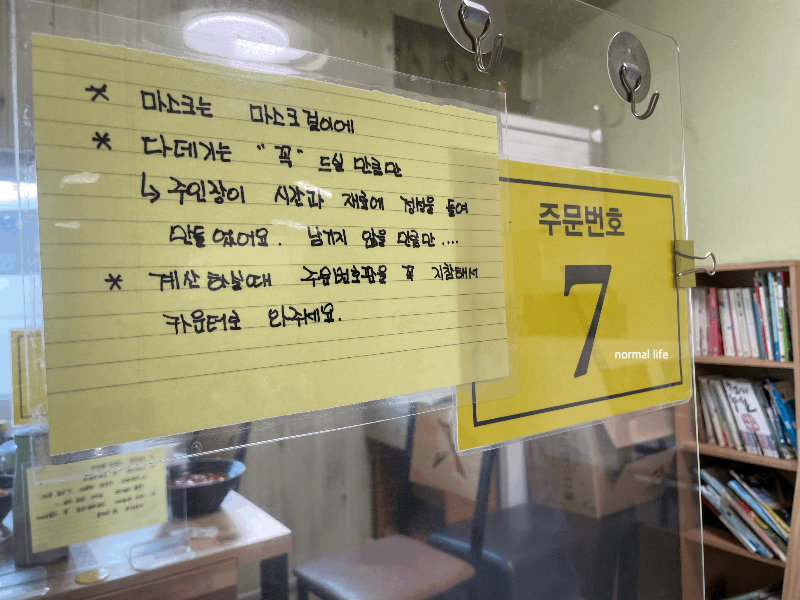 * 마스크는 마스크걸이에
* 다데기는 "꼭" 드실 만큼만
↳ 주인장이 시간과 재료에 정성을 들여
만들었어요. 남기지 않을 만큼만....
* 계산하실때 주문번호판을 꼭 지참해서
카운터로 와주세요.
주문번호
7
normal life